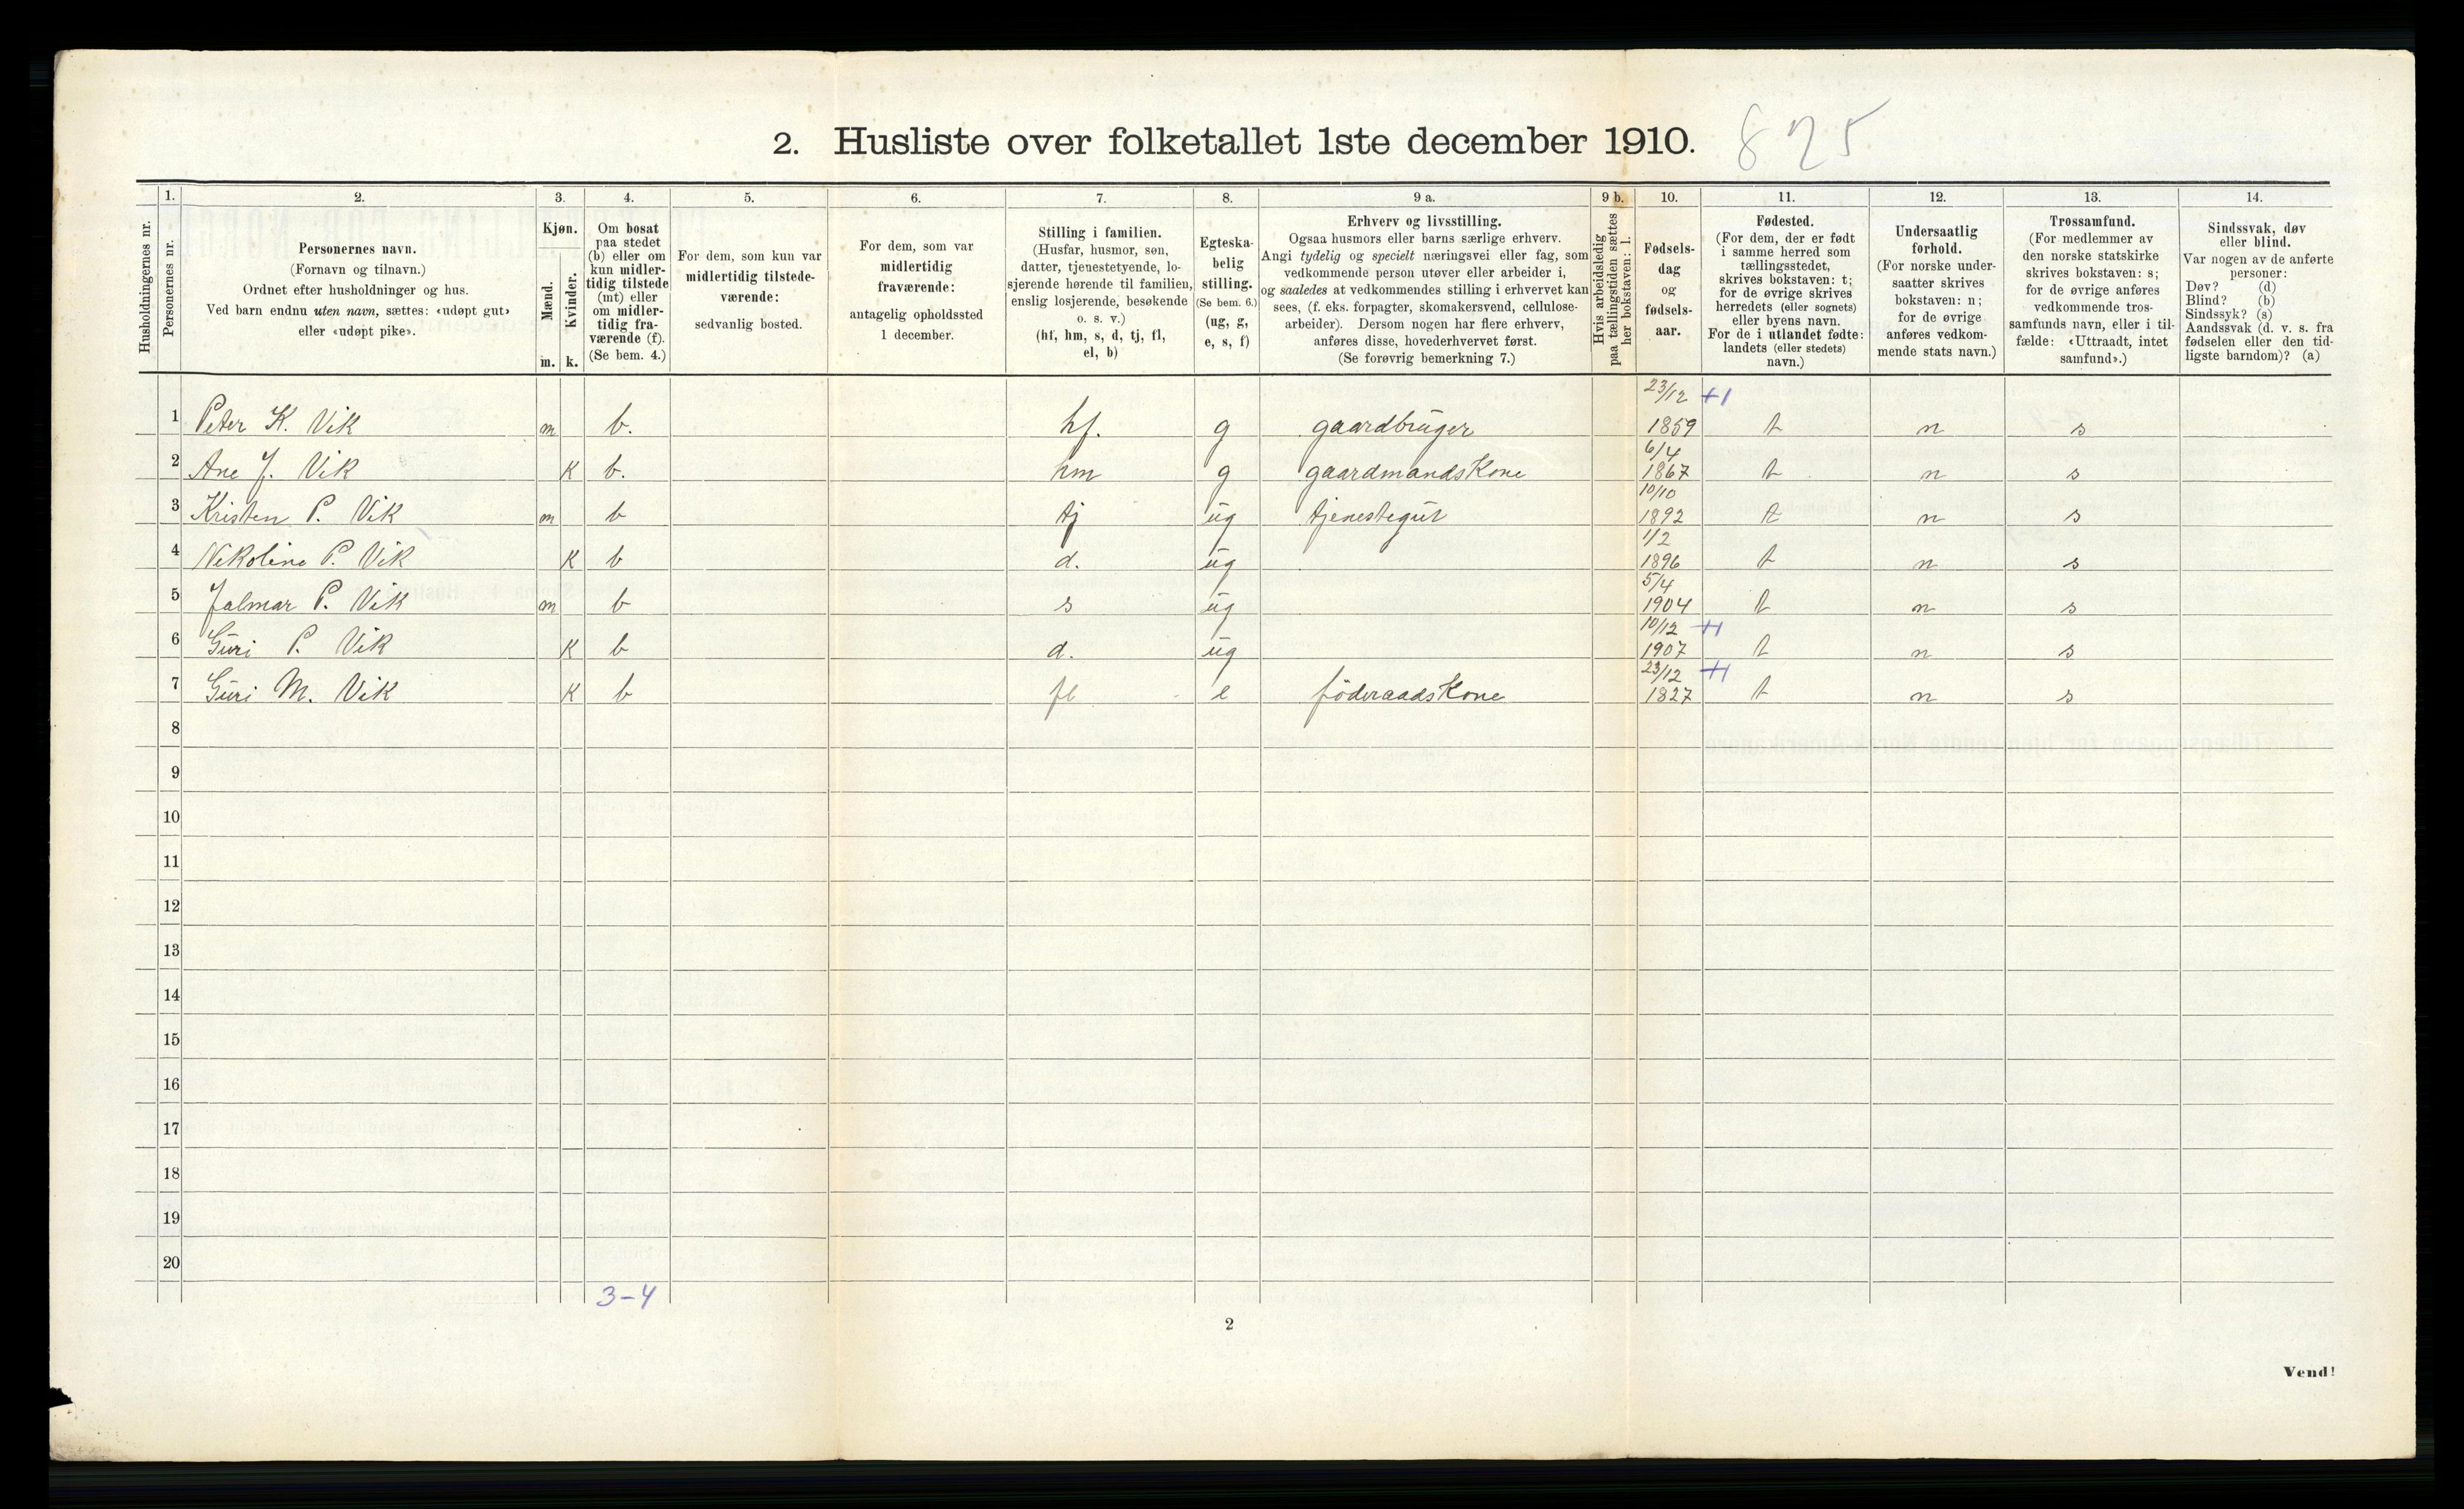 2. Husliste over folketallet 1ste december 1910. 825
Husholdningernes nr.
1.
Personernes nr.
2.
Personernes navn.
(Fornavn og tilnavn.)
Ordnet efter husholdninger og hus.
Ved barn endnu uten navn, sættes: «udøpt gut»
eller «udøpt pike».
3.
Kjøn.
Mænd.
m.
Kvinder.
k.
4.
Om bosat
paa stedet
(b) eller om
kun midler-
tidig tilstede
(mt) eller
om midler-
tidig fra-
værende (f).
(Se bem. 4.)
5.
For dem, som kun var
midlertidig tilstede-
værende:
sedvanlig bosted.
6.
For dem, som var
midlertidig
fraværende:
antagelig opholdssted
1 december.
7.
Stilling i familien.
(Husfar, husmor, søn,
datter, tjenestetyende, lo-
sjerende hørende til familien,
enslig losjerende, besøkende
o. s. v.)
(hf, hm, s, d, tj, fl,
el, b)
8.
Egteska-
belig
stilling.
(Se bem. 6.)
(ug, g,
e, s, f)
9 a.
Erhverv og livsstilling.
Ogsaa husmors eller barns særlige erhverv.
Angi tydelig og specielt næringsvei eller fag, som
vedkommende person utøver eller arbeider i,
og saaledes at vedkommendes stilling i erhvervet kan
sees, (f. eks. forpagter, skomakersvend, cellulose-
arbeider). Dersom nogen har flere erhverv,
anføres disse, hovederhvervet først.
(Se forøvrig bemerkning 7.)
9 b.
Hvis arbeidsledig
paa tællingstiden sættes
her bokstaven: l.
10.
Fødsels-
dag
og
fødsels-
aar.
11.
Fødested.
(For dem, der er født
i samme herred som
tællingsstedet,
skrives bokstaven: t;
for de øvrige skrives
herredets (eller sognets)
eller byens navn.
For de i utlandet fødte:
landets (eller stedets)
navn.)
12.
Undersaatlig
forhold.
(For norske under-
saatter skrives
bokstaven: n;
for de øvrige
anføres vedkom-
mende stats navn.)
13.
Trossamfund.
(For medlemmer av
den norske statskirke
skrives bokstaven: s;
for de øvrige anføres
vedkommende tros-
samfunds navn, eller i til-
fælde: «Uttraadt, intet
samfund».)
14.
Sindssvak, døv
eller blind.
Var nogen av de anførte
personer:
Døv? (d)
Blind? (b)
Sindssyk? (s)
Aandssvak (d. v. s. fra
fødselen eller den tid-
ligste barndom)? (a)
1 Peter K. Vik m b. hf. g gaardbruger 23/12 1859 +1 t n s
2 Ane J. Vik K b. hm g gaardmandsKone 6/4 1867 t n s
3 Kristen P. Vik m b tj ug tjenestegut 10/10 1892 t n s
4 Nikoline P. Vik K b d. ug 1/2 1896 t n s
5 Jalmar P. Vik m b s ug 5/4 1904 t n s
6 Guri P. Vik K b d. ug 10/12 1907 +1 t n s
7 Guri M. Vik K b fl e föderaadsKone 23/12 1827 +1 t n s
8
9
10
11
12
13
14
15
16
17
18
19
20
3-4
2
Vend!